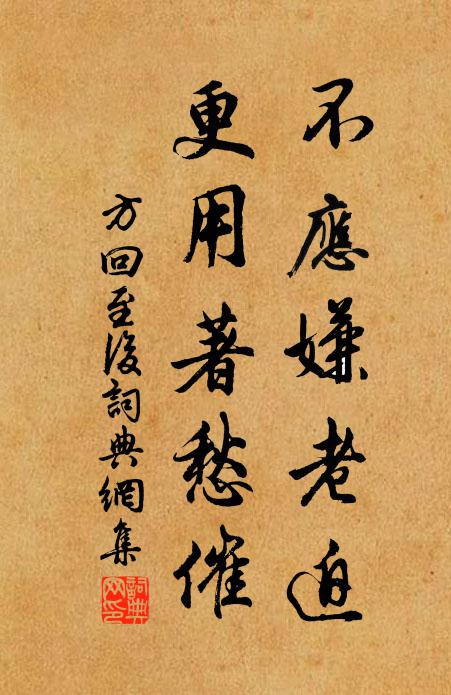 不應嫌老迫
更用著愁催
方回至後詞典網集
詞典網印